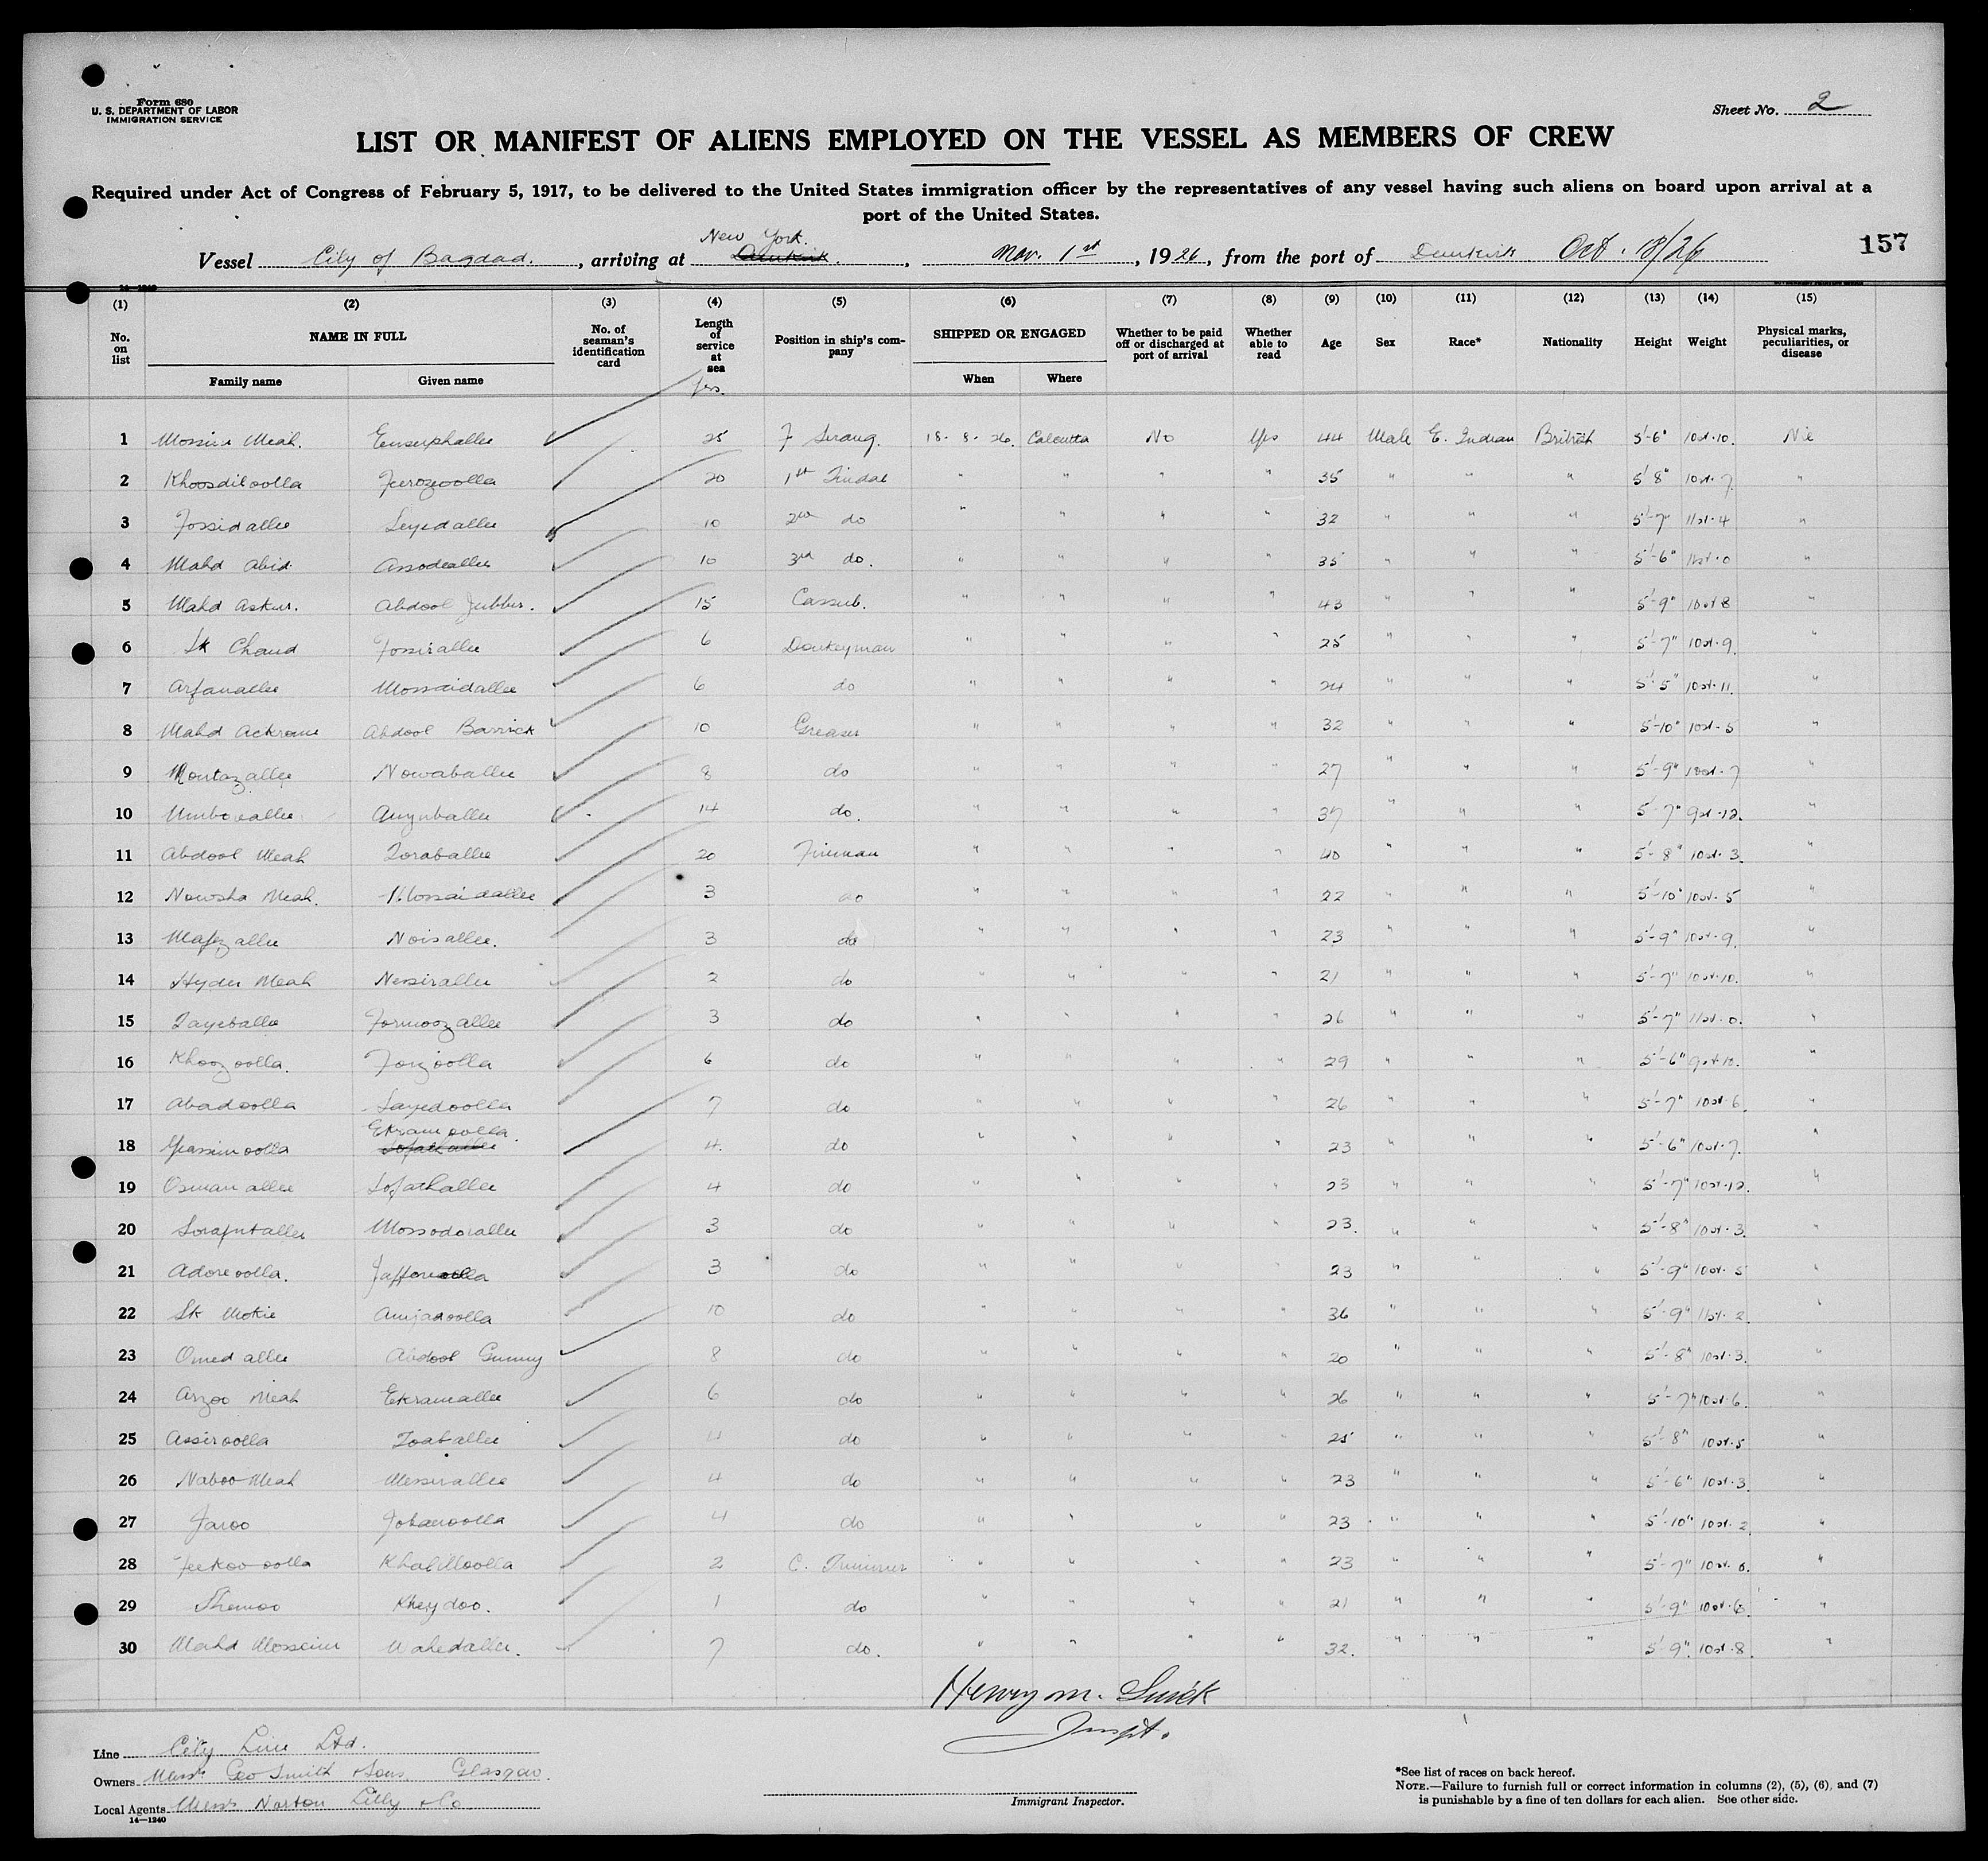 Form 680
U. S. DEPARTMENT OF LABOR
IMMIGRATION SERVICE
Sheet No. 2
LIST OR MANIFEST OF ALIENS EMPLOYED ON THE VESSEL AS MEMBERS OF CREW
Required under Act of Congress of February 5, 1917, to be delivered to the United States immigration officer by the representatives of any vessel having such aliens on board upon arrival at a
port of the United States.
New York.
Vessel City of Bagdad. , arriving at Dunkirk. , Nov. 1st , 1926, from the port of Dunkirk Oct. 18/26
157
(1) (2) (3) (4) (5) (6) (7) (8) (9) (10) (11) (12) (13) (14) (15)
No. on list NAME IN FULL Family name Given name No. of seaman's identification card Length of service at sea Position in ship's company SHIPPED OR ENGAGED When Where Whether to be paid off or discharged at port of arrival Whether able to read Age Sex Race* Nationality Height Weight Physical marks, peculiarities, or disease
yrs.
1 Eusuphallee 25 F Serang. 18-8-26. Calcutta No Yes 44 Male E. Indian British 5'-6" 10st-10. Nil
2 Khoosdiloolla Feerozoolla 20 1st Tindal " " " " 35 " " " 5'-8" 10st-7 "
3 Fossidallee Seyedallee 10 2nd do " " " " 32 " " " 5'-7" 11st-4 "
4 Mahd Abid Assodeallee 10 3rd do. " " " " 35 " " " 5'-6" 11st-0 "
5 Mahd Askur. Abdool Jubbur. 15 Cassub. " " " " 43 " " " 5'-9" 10st 8 "
6 Sk Chand Fossirallee 6 Donkeyman " " " " 25 " " " 5'-7" 10st-9. "
7 Arfanallee Mossaidallee 6 do " " " " 24 " " " 5'-5" 10st-11. "
8 Mahd Ackrome Abdool Barrick 10 Greaser " " " " 32 " " " 5'-10" 10st-5 "
9 Montazallee Nowaballee 8 do " " " " 27 " " " 5'-9" 10st-7 "
10 Ayubballee 14 do. " " " " 37 " " " 5'-7" 9st-12. "
11 Abdool Meah Toraballee 20 Fireman " " " " 40 " " " 5'-8" 10st-3. "
12 Nowsha Meah. Mossaidallee 3 do " " " " 22 " " " 5'-10" 10st-5 "
13 Mafizallee Noisallee. 3 do " " " " 23 " " " 5'-9" 10st-9. "
14 Hyder Meah Nessirallee 2 do " " " " 21 " " " 5'-7" 10st-10. "
15 Tayeballee Formoozallee 3 do " " " " 26 " " " 5'-7" 11st-0. "
16 Khoozoolla. Fonjoolla 6 do " " " " 29 " " " 5'-6" 9st-10. "
17 Abadoolla Sayedoolla 7 do " " " " 26 " " " 5'-7" 10st-6. "
Ekramoolla.
18 Yassinoolla Sofathallee 4. do " " " " 23 " " " 5'-6" 10st-7. "
19 Osmanallee Sofathallee 4 do " " " " 23 " " " 5'-7" 10st-12. "
20 Sorafutallee Mossodorallee 3 do " " " " 23. " " " 5'-8" 10st-3. "
21 Adoreoolla. Jafforeoolla 3 do " " " " 23 " " " 5'-9" 10st-5 "
22 Sk Mokie Amjadoolla 10 do " " " " 36 " " " 5'-9" 11st-2. "
23 Omedallee Abdool Gunny 8 do " " " " 20 " " " 5'-8" 10st-3. "
24 Arzoo Meah Ekramallee 6 do " " " " 26 " " " 5'-7" 10st-6. "
25 Assiroolla Toaballee 4 do " " " " 25 " " " 5'-8" 10st-5 "
26 Naboo Meah Messirallee 4 do " " " " 23 " " " 5'-6" 10st-3. "
27 Jaroo Jobanoolla 4 do " " " " 23 " " " 5'-10" 10st-2. "
28 Feekoooolla Khalilloolla 2 C. Trimmer " " " " 23 " " " 5'-7" 10st-6. "
29 Themoo Kheydoo. 1 do " " " " 21 " " " 5'-9" 10st-6. "
30 Mahd Mosseim Wahedallee. 7 do. " " " " 32. " " " 5'-9". 10st-8. "
Henry M.
Inspt.
Line City Line Ltd.
Owners Messrs Geo Smith & Sons Glasgow.
Local Agents Messrs Norton Lilly & Co.
14—1240
Immigrant Inspector.
*See list of races on back hereof.
NOTE.—Failure to furnish full or correct information in columns (2), (5), (6), and (7)
is punishable by a fine of ten dollars for each alien. See other side.